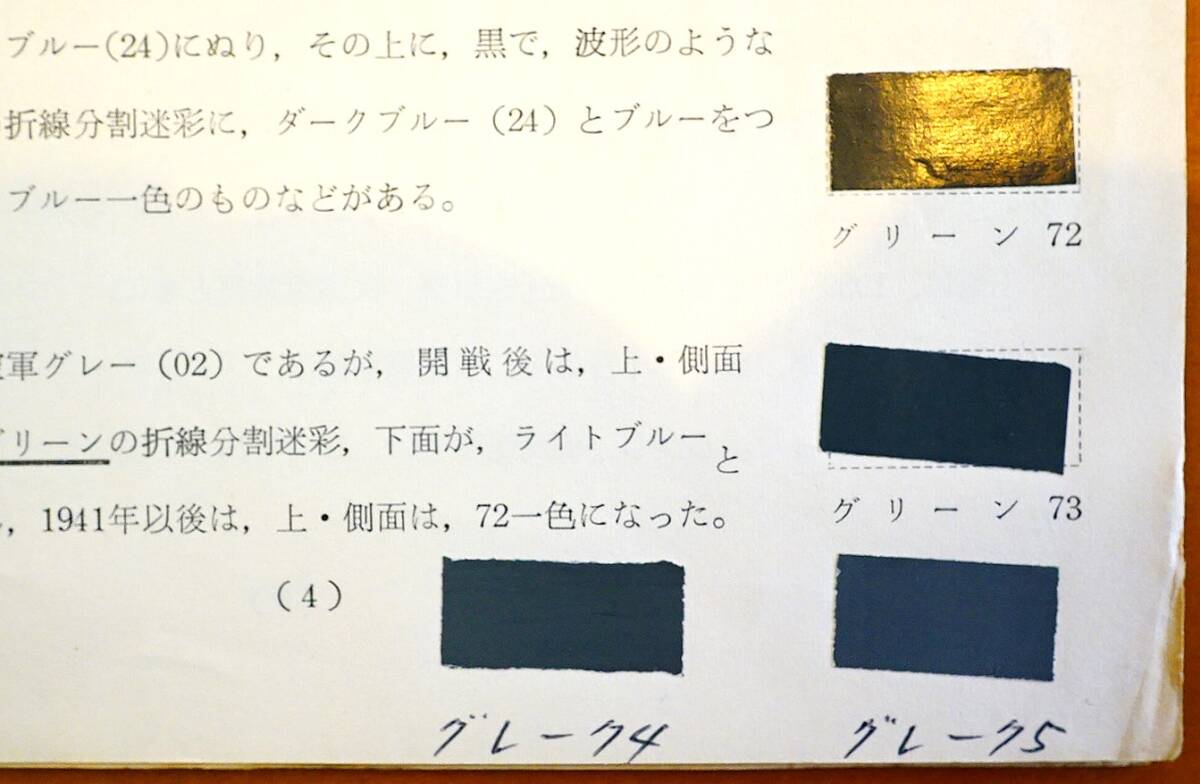 ブルー(24)にぬり，その上に，黒で，波形のような
折線分割迷彩に，ダークブルー（24）とブルーをつ
ブルー一色のものなどがある。
グリーン 72
軍グレー（02）であるが，開戦後は，上・側面
リーンの折線分割迷彩，下面が，ライトブルーと
，1941年以後は，上・側面は，72一色になった。
グリーン 73
（4）
グレー74
グレー75